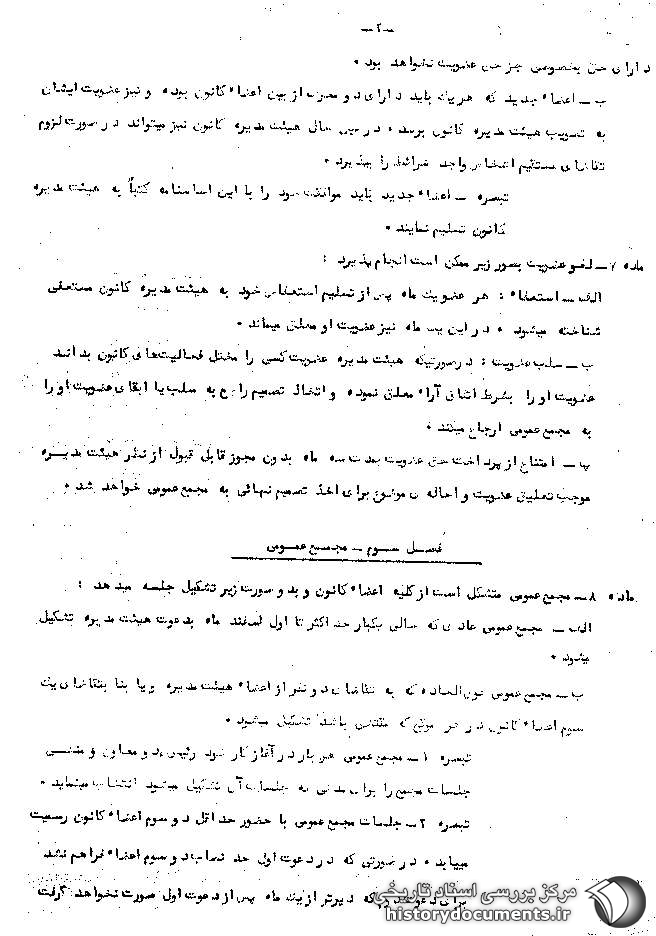 ـ ۲ ـ
دارای حق بخصوصی جز حق عضویت نخواهد بود .
ب ـ اعضاء جدید که هر یک باید دارای دو معرف از بین اعضاء کانون بوده و نیز عضویت ایشان
به تصویب هیئت مدیره کانون برسد . در عین حال هیئت مدیره کانون نیز میتواند در صورت لزوم
تقاضای مستقیم اعضاء واجد شرائط را بپذیرد .
تبصره ـ اعضاء جدید باید موافقت خود را با این اساسنامه کتباً به هیئت مدیره
کانون تسلیم نمایند .
ماده ۷ ـ لغو عضویت بصور زیر ممکن است انجام پذیرد :
الف ـ استعفاء : هر عضو یک ماه پس از تسلیم استعفای خود به هیئت مدیره کانون مستعفی
شناخته میشود . در این یک ماه نیز عضویت او معلق میماند .
ب ـ سلب عضویت : در صورتیکه هیئت مدیره عضویت کسی را مخل فعالیت‌های کانون بداند
عضویت او را بشرط اتفاق آراء معلق نموده و اتخاذ تصمیم راجع به سلب یا ابقای عضویت او را
به مجمع عمومی ارجاع میکند .
امتناع از پرداخت حق عضویت بمدت سه ماه بدون مجوز قابل قبول از نظر هیئت مدیره
موجب تعلیق عضویت و احاله ی موضوع برای اخذ تصمیم نهائی به مجمع عمومی خواهد شد .
فصل سوم ـ مجمع عمومی
ماده ۸ ـ مجمع عمومی متشکل است از کلیه اعضاء کانون و بدو صورت زیر تشکیل جلسه میدهد :
الف ـ مجمع عمومی عادی که سالی یکبار حداکثر تا اول اسفند ماه بدعوت هیئت مدیره تشکیل
میشود .
ب ـ مجمع عمومی فوق‌العاده که به تقاضای دو نفر از اعضاء هیئت مدیره و یا بنا بتقاضای یک
سوم اعضاء کانون در هر موقع که مقتضی باشد تشکیل میشود .
تبصره ۱ ـ مجمع عمومی هر بار در آغاز کار خود رئیس و دو معاون و منشی
جلسات مجمع را برای مدتی که جلسات آن تشکیل میشود انتخاب مینماید .
تبصره ۲ ـ جلسات مجمع عمومی با حضور حداقل دو سوم اعضاء کانون رسمیت
مییابد . در صورتی که در دعوت اول حد نصاب دو سوم اعضاء فراهم نشد
برای دعوت که دیرتر از یک ماه پس از دعوت اول صورت نخواهد گرفت
مرکز بررسی اسناد تاریخی
historydocuments.ir